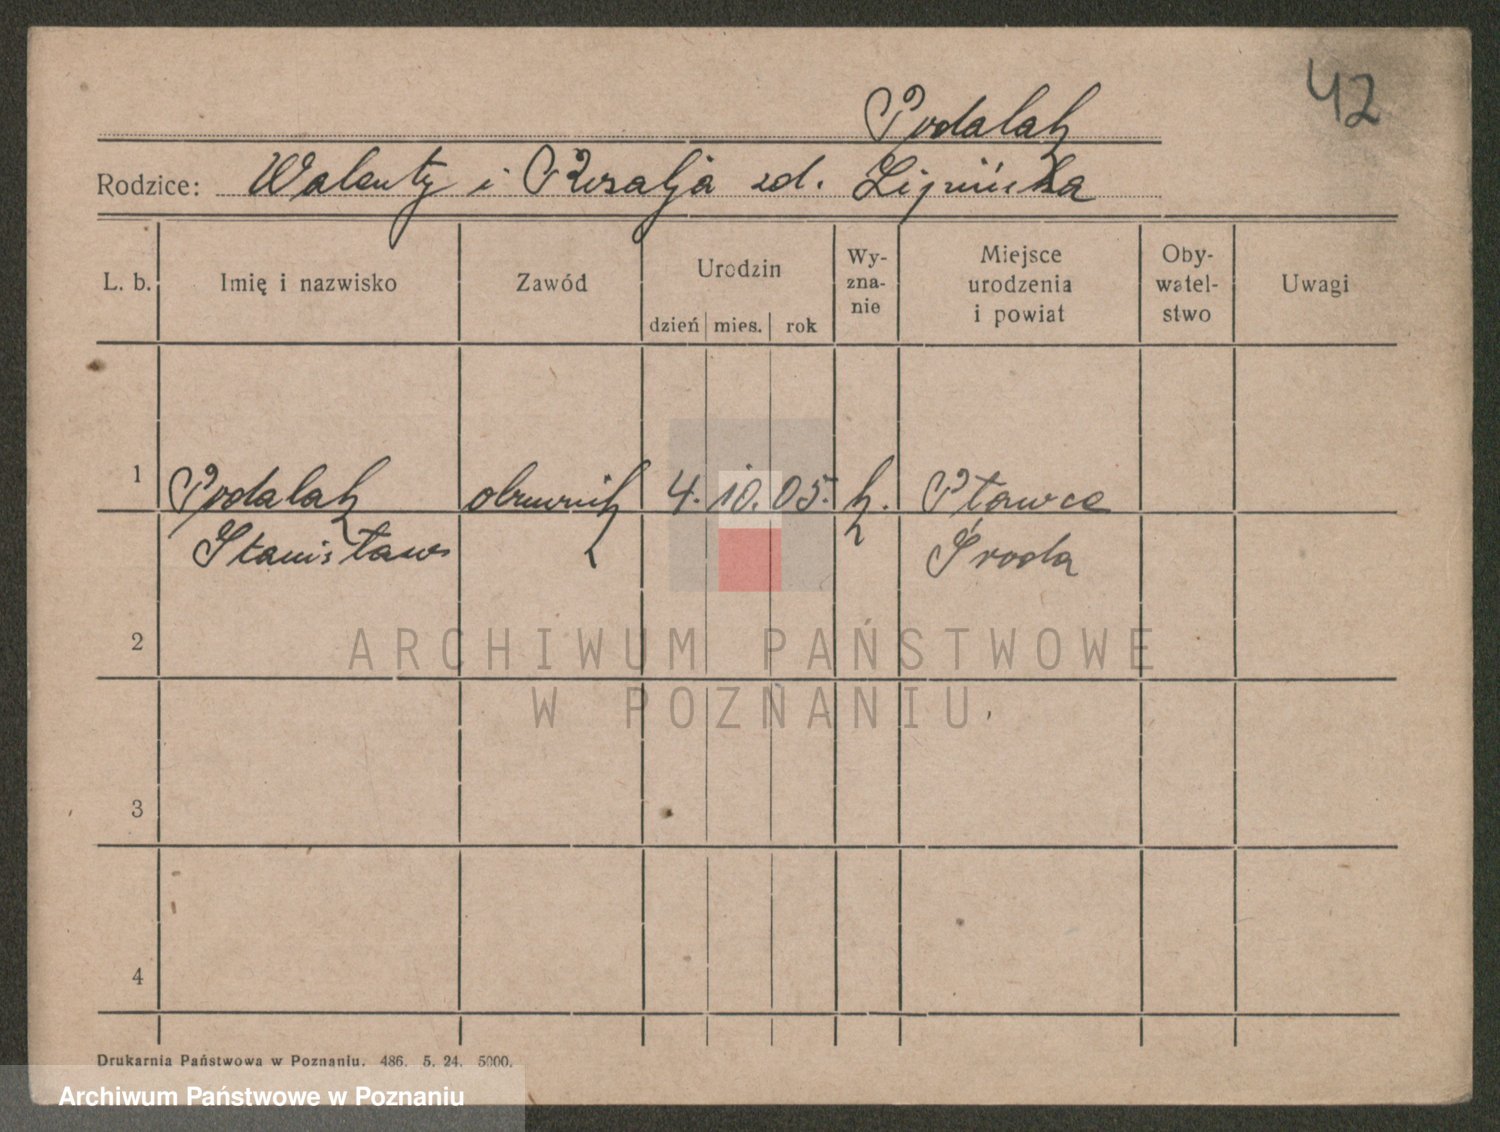 42
Podolak
Rodzice: Walenty i Rozalja zd. Lipińska
L. b. Imię i nazwisko Zawód Urodzin dzień mies. rok Wy-zna-nie Miejsce urodzenia i powiat Oby-watel-stwo Uwagi
1 Podolak 4. 10. 05. k. Pławce
Stanisław Środa
2
3
4
ARCHIWUM PAŃSTWOWE
W POZNANIU
Drukarnia Państwowa w Poznaniu. 486. 5. 24. 5000.
Archiwum Państwowe w Poznaniu